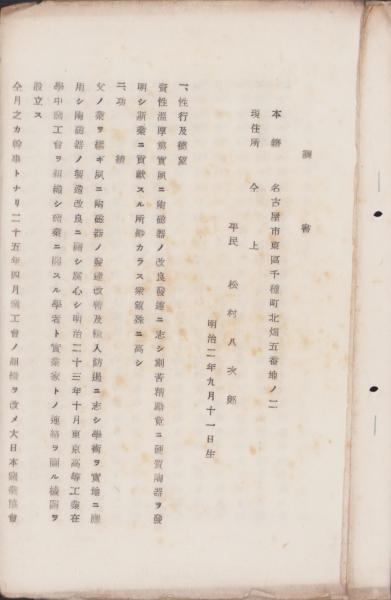 調書
本籍 名古屋市東區千種町北畑五番地ノ二
現住所 仝上
平民 松村八次郎
明治二年九月十一日生
一、性行及徳望
資性溫厚篤實夙ニ陶磁器ノ改良發達ニ志シ刻苦精勵竟ニ硬質陶器ヲ發
明シ斯業ニ貢獻スル所尠カラス衆望殊ニ高シ
二、功績
父ノ業ヲ繼ギ夙ニ陶磁器ノ發達改善及輸入防遏ニ志シ學術ヲ實地ニ應
用シ陶磁器ノ製造改良ニ關シ腐心シ明治二十三年十月東京高等工業在
學中窯工會ヲ組織シ窯業ニ關スル學者ト實業家トノ連絡ヲ圖ル機關ヲ
設立ス
仝月之カ幹事トナリ二十五年四月窯工會ノ組織ヲ改メ大日本窯業協會